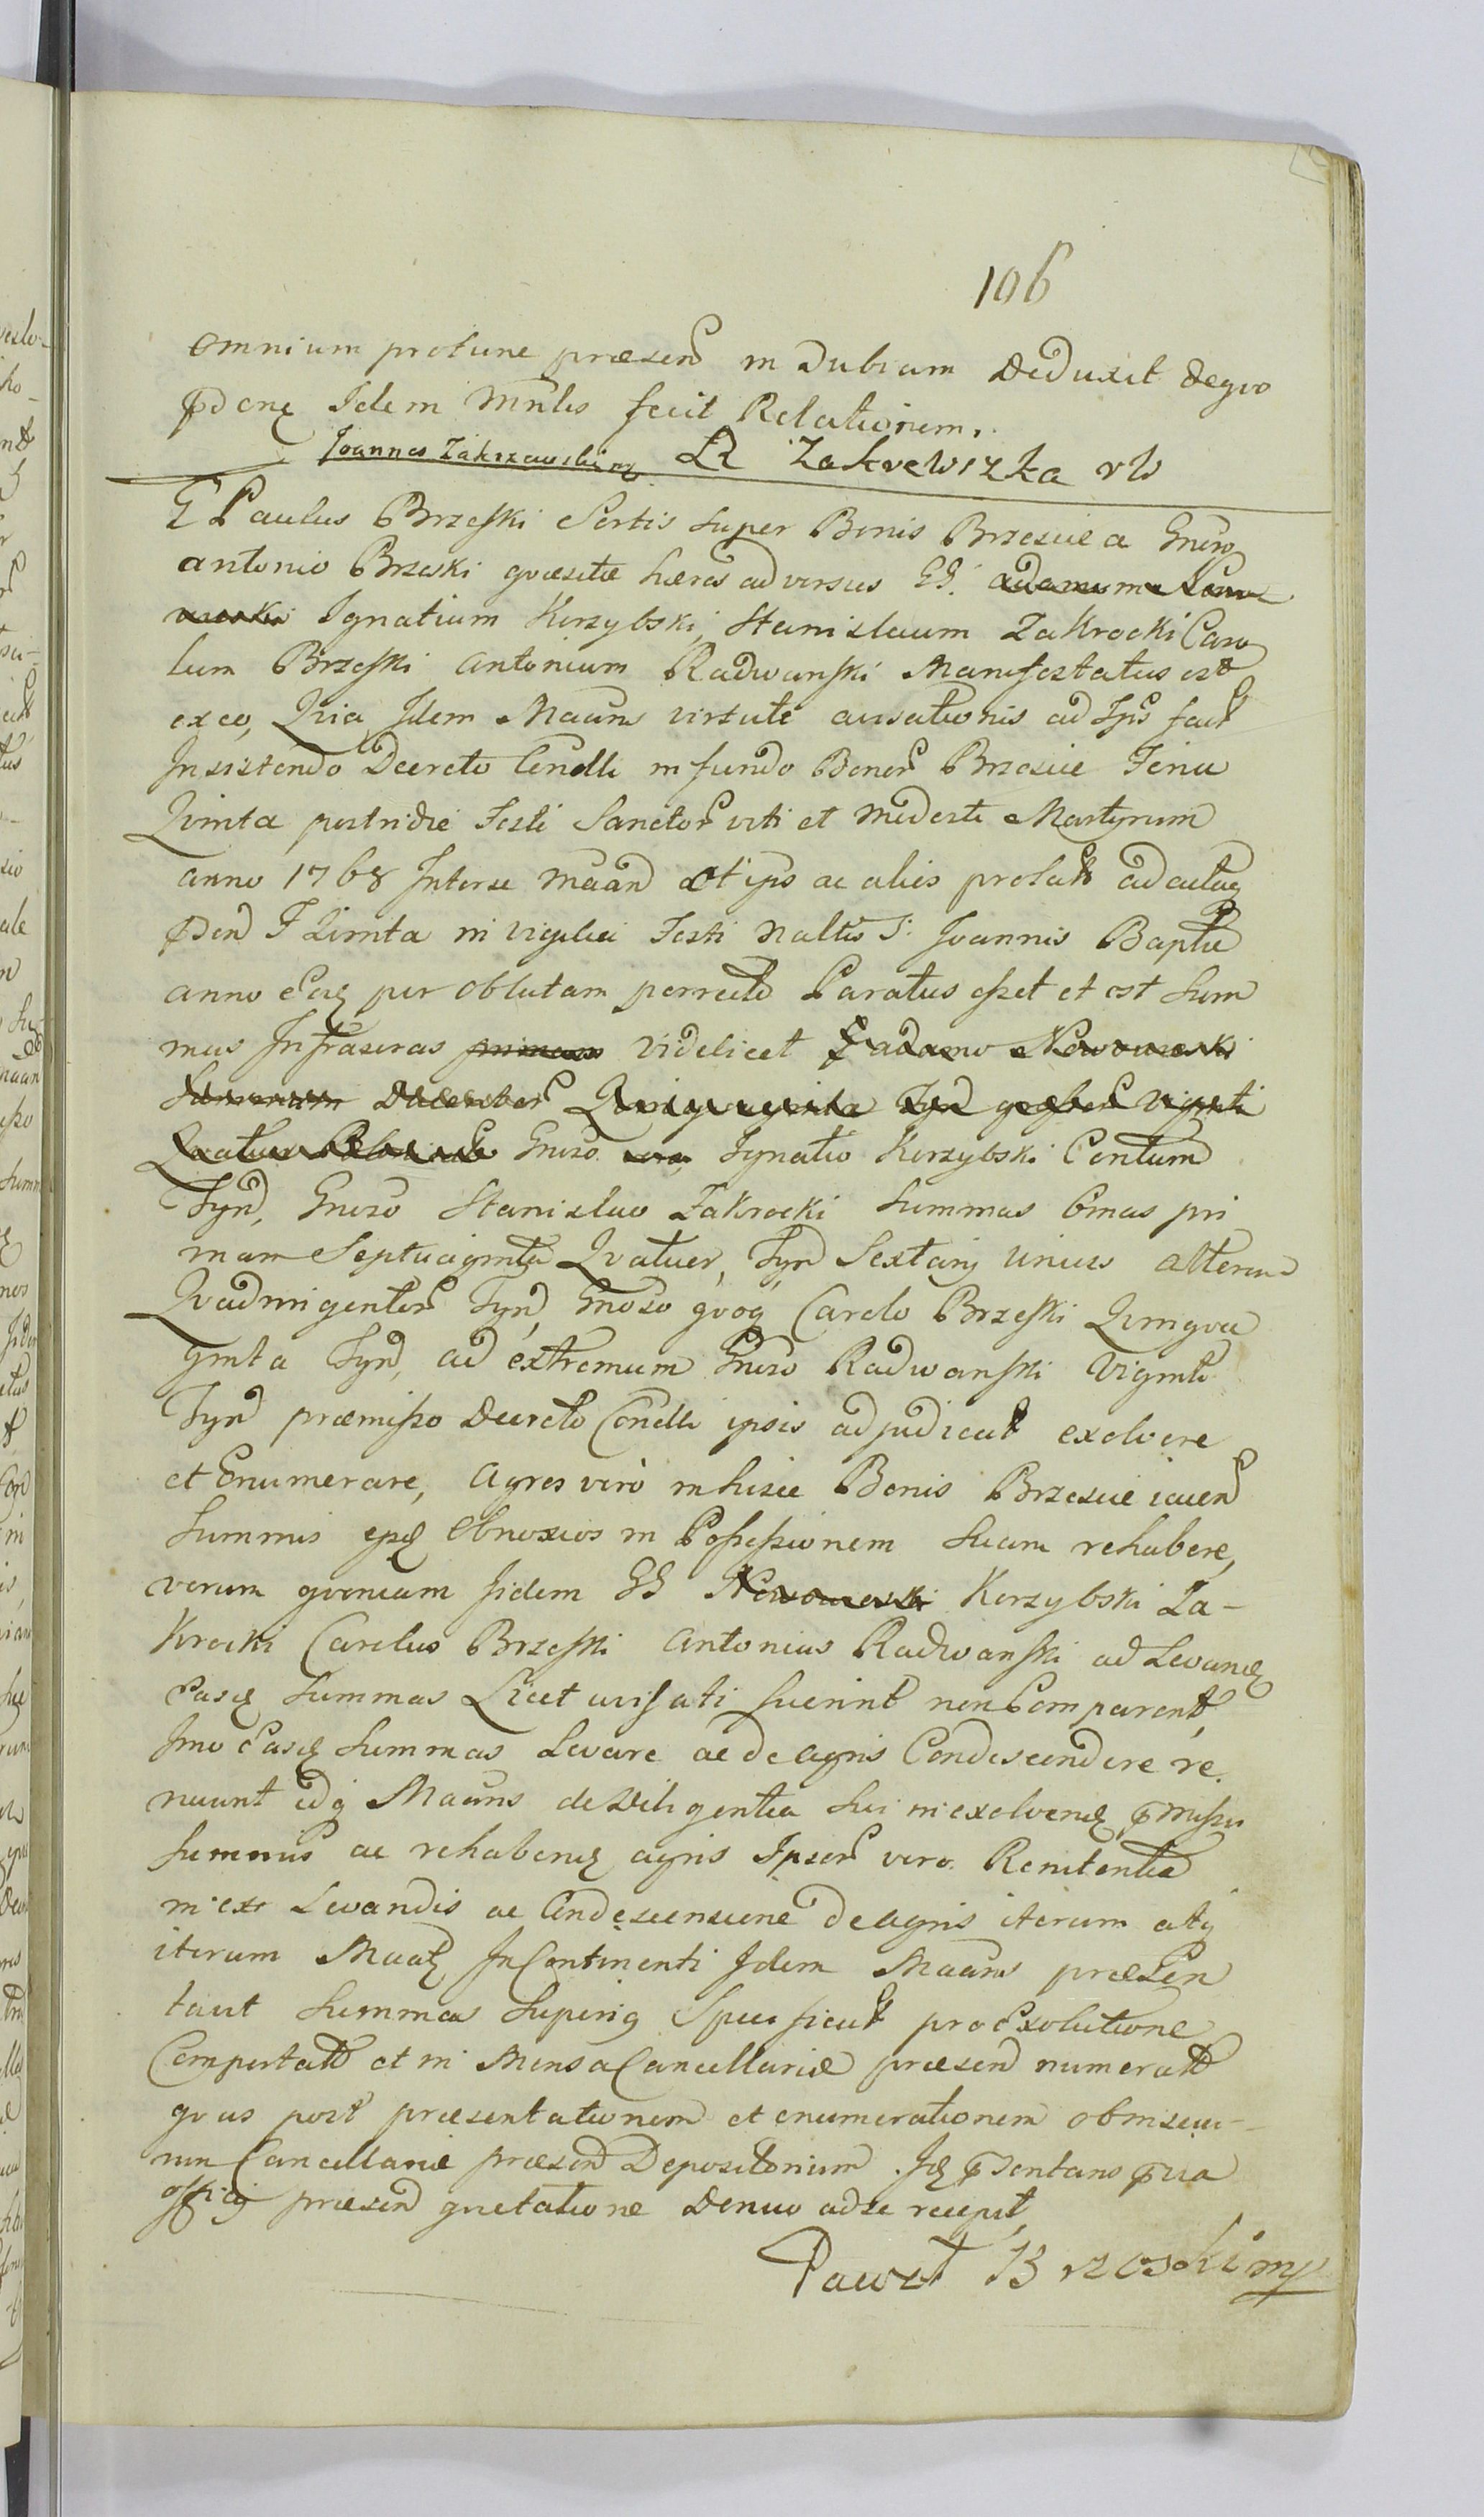 106
omnium protunc præsen in Dubium Deduxit de quo
Idem Mnlis fecit Relationem.
Joannes Zakrzewski mp Zakrewszka
G Paulus Brzeski Sortis super Bonis Brzescie a Gnoso
Antonio Brzeski quæsitæ hæres adversus GG. Adamum Nowo
wieski Ignatium Korzybski, Stanislaum Zakrocki Caro
lum Brzeski Antonium Radwanski Manifestatus est
ex eo, Quia Idem Maans virtute avisationis ad Ips fact
Insistendo Decreto Condli in fundo Bonor Brzescie Feria
Quinta postridie Festi Sanctor viti et Modesti Martyrum
anno 1768 Inter se Maan et ips ac alios prolato ad
F Quinta in vigilia Festi Naltis S. Joannis Baptæ
anno per Oblatam porrecto Paratus esset et est Sum
mas Infrascras primam Videlicet G Adamo Nowowieski
Summam Ducentor Quinquaginta Tyn Viginti
Quatuor Gnoso Ignatio Korzybski Centum
Tyn, Gnoso Stanislao Zakrocki Summas binas pri
mam Septuaginta Quatuor, Tyn Sextarij unius alteram
Quadringentor Tyn, Gnoso quoq Carolo Brzeski Quinqua
ginta Tyn, ad extremum Gnoso Radwanski Viginti
Tyn præmisso Decreto Condli ipsis adjudicat exolvere
et Enumerare, Agros verò in hisce Bonis Brzescie jacen
Summis Obnoxios in Possessionem Suam rehabere,
verum quoniam Iidem GG Nowowieski Korzybski Za-
krocki Carolus Brzeski Antonius Radwanski ad Levand
Easd Summas Licet avisati fuerint non Comparent,
Imo Easd Summas Levare ac de agris Condescendere re
nuunt idq Maans de Diligentia Sui in exolvend
Summis ac rehabend agris Ipsor vero Renitentia
in ex Levandis ac Condescensione de agris iterum atq
iterum In Continenti Idem Maans præsen
tavit Summas Superiq Specificat pro Exolutione
Comportatt et in Mensa Cancellariæ præsen numeratt
quas post præsentationem et enumerationem ob
Cancellariæ præsen Depositorium.
officij præsen quietatione Denuo ad se recepit,
Paweł Brzoski mp